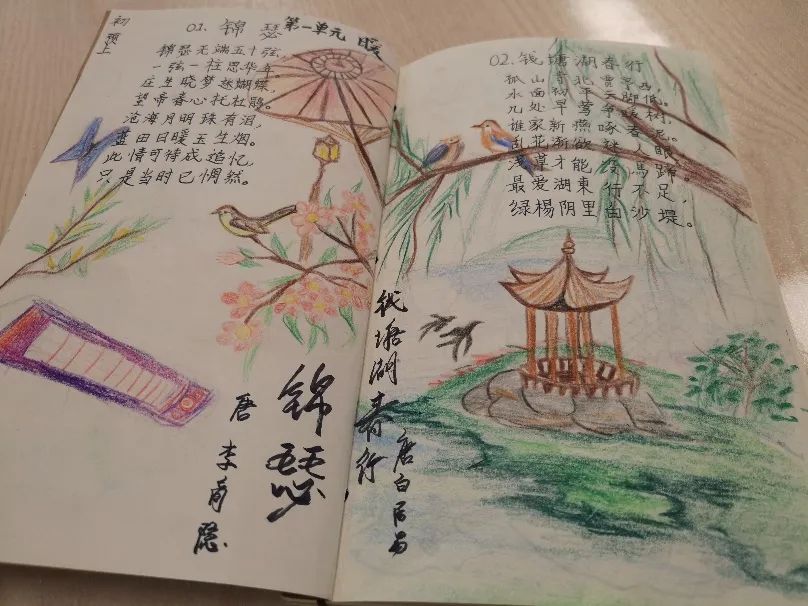 初
预上
01. 锦瑟 第一单元 暖
锦瑟无端五十弦,
一弦一柱思华年。
庄生晓梦迷蝴蝶,
望帝春心托杜鹃。
沧海月明珠有泪,
蓝田日暖玉生烟。
此情可待成追忆,
只是当时已惘然。
锦瑟
唐 李商隐
02.钱塘湖春行
孤山寺北贾亭西,
水面初平云脚低。
几处早莺争暖树,
谁家新燕啄春泥。
乱花渐欲迷人眼,
浅草才能没馬蹄。
最爱湖東行不足,
绿楊阴里白沙堤。
钱塘湖春行
唐白居易